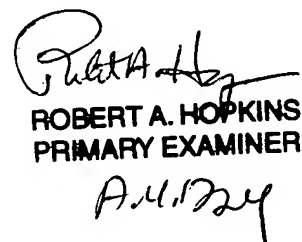 Robert A. Hop
ROBERT A. HOPKINS
PRIMARY EXAMINER
A.U.